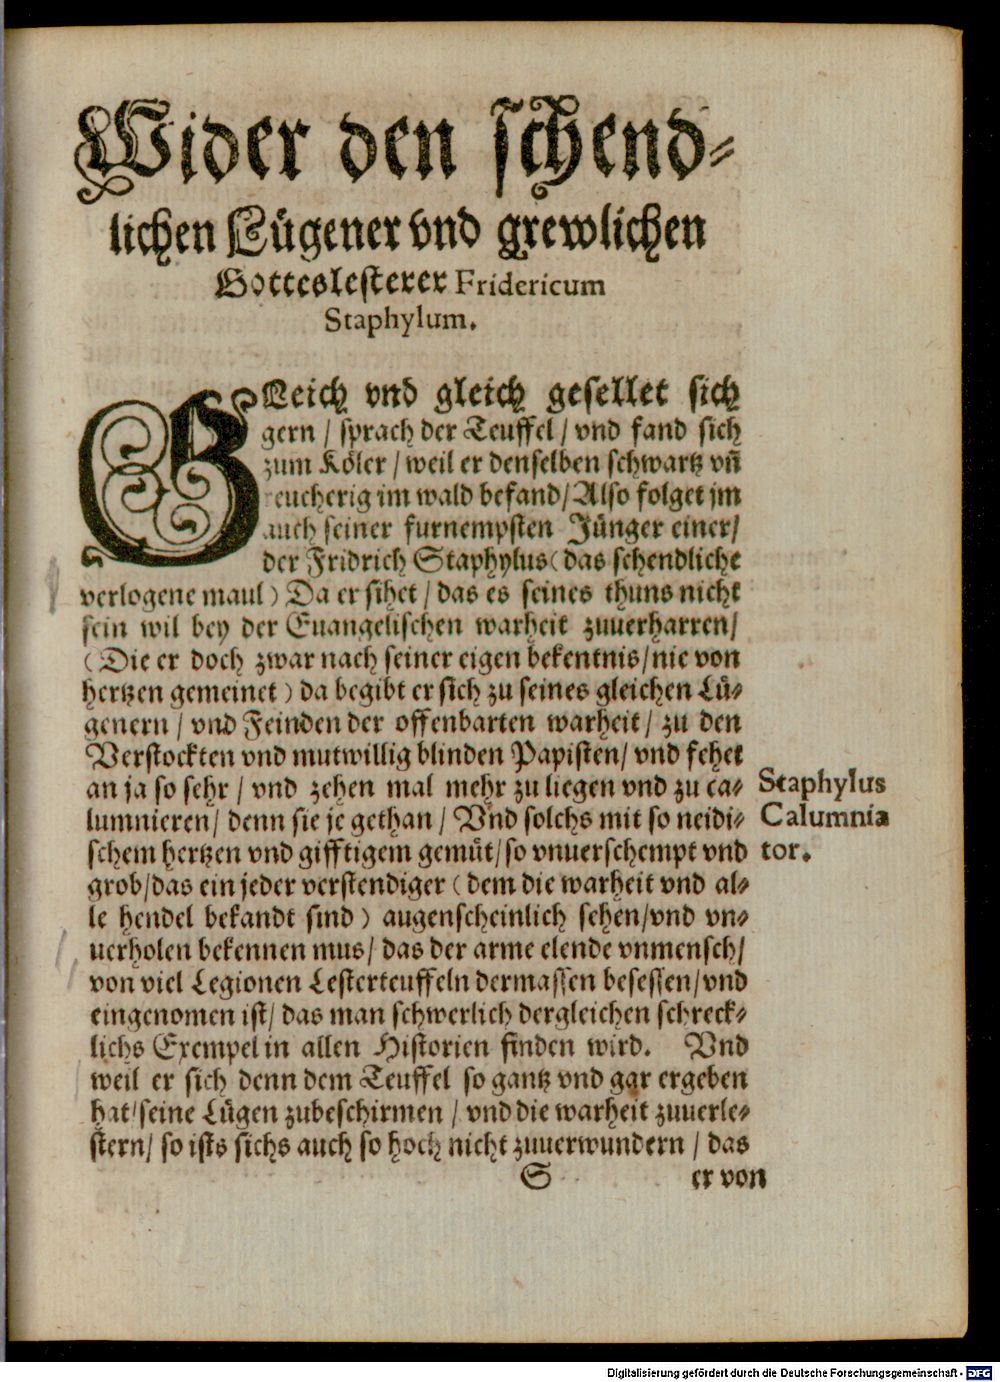 Wider den schend⸗
lichen Lügener vnd grewlichen
Gotteslesterer Fridericum
Staphylum.
GLeich vnd gleich gesellet sich
gern / sprach der Teuffel / vnd fand sich
zum Köler / weil er denselben schwartz vñ
reucherig im wald befand / Also folget jm
auch seiner furnempsten Jünger einer /
der Fridrich Staphylus (das schendliche
verlogene maul) Da er sihet / das es seines thuns nicht
sein wil bey der Euangelischen warheit zuuerharren /
(Die er doch zwar nach seiner eigen bekentnis / nie von
hertzen gemeinet) da begibt er sich zu seines gleichen Lü⸗
genern / vnd Feinden der offenbarten warheit / zu den
Verstockten vnd mutwillig blinden Papisten / vnd fehet
an ja so sehr / vnd zehen mal mehr zu liegen vnd zu ca⸗
lumnieren / denn sie je gethan / Vnd solchs mit so neidi⸗
schem hertzen vnd gifftigem gemüt / so vnuerschempt vnd
grob / das ein jeder verstendiger (dem die warheit vnd al⸗
le hendel bekandt sind) augenscheinlich sehen / vnd vn⸗
uerholen bekennen mus / das der arme elende vnmensch /
von viel Legionen Lesterteuffeln dermassen besessen / vnd
eingenomen ist / das man schwerlich dergleichen schreck⸗
lichs Exempel in allen Historien finden wird. Vnd
weil er sich denn dem Teuffel so gantz vnd gar ergeben
hat / seine Lügen zubeschirmen / vnd die warheit zuuerle⸗
stern / so ists sichs auch so hoch nicht zuuerwundern / das
S er von
Staphylus
Calumnia
tor.
Digitalisierung gefördert durch die Deutsche Forschungsgemeinschaft - DFG